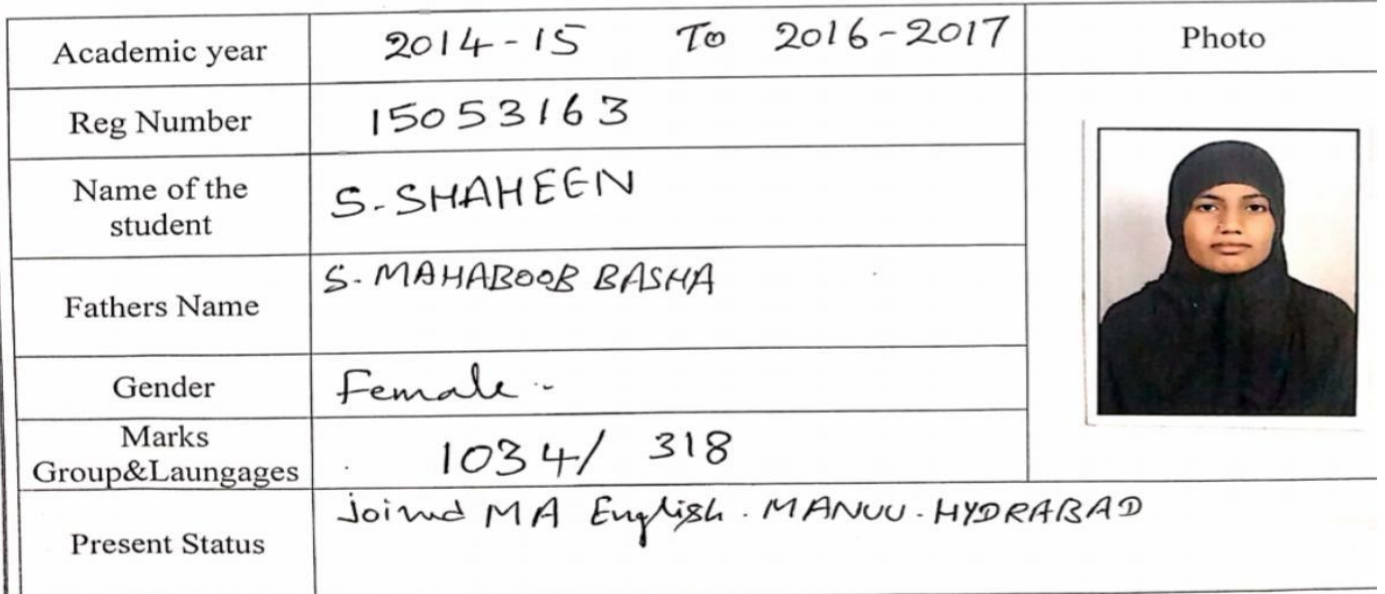 Academic year 2014-15 To 2016-2017 Photo
Reg Number 15053163
Name of the
student S. SHAHEEN
Fathers Name S. MAHABOOB BASHA
Gender Female.
Marks
Group&Laungages 1034/ 318
Present Status Joined MA English. MANUU. HYDRABAD